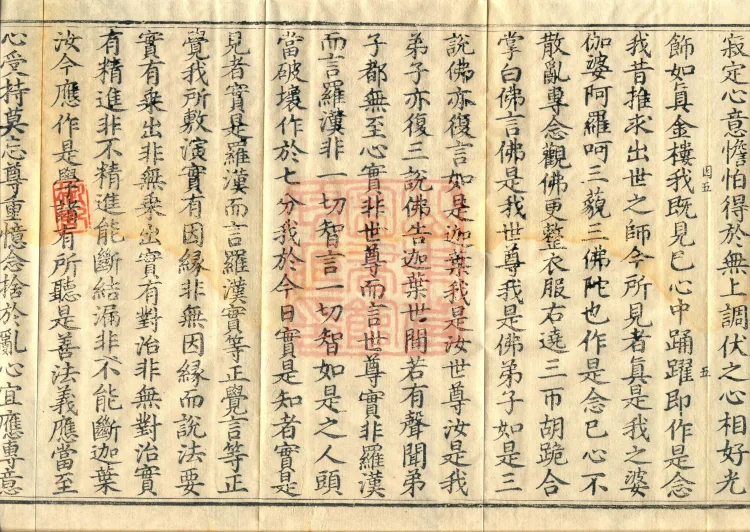 寂定心意憺怕得於無上調伏之心相好光
飾如真金樓我既見已心中踊躍即作是念
我昔推求出世之師今所見者真是我之婆
伽婆阿羅呵三藐三佛陀也作是念已心不
散亂專念觀佛更整衣服右遶三帀胡跪合
掌白佛言佛是我世尊我是佛弟子如是三
說佛亦復言如是迦葉我是汝世尊汝是我
弟子亦復三說佛告迦葉世間若有聲聞弟
子都無至心實非世尊而言世尊實非羅漢
而言羅漢非一切智言一切智如是之人頭
當破壞作於七分我於今日實是知者實是
見者實是羅漢而言羅漢實等正覺言等正
覺我所敷演實有因緣非無因緣而說法要
實有乗出非無乗出實有對治非無對治實
有精進非不精進能斷結漏非不能斷迦葉
汝今應作是學諸有所聽是善法義應當至
心受持莫忘尊重憶念捨於亂心宜應專意
四五
五